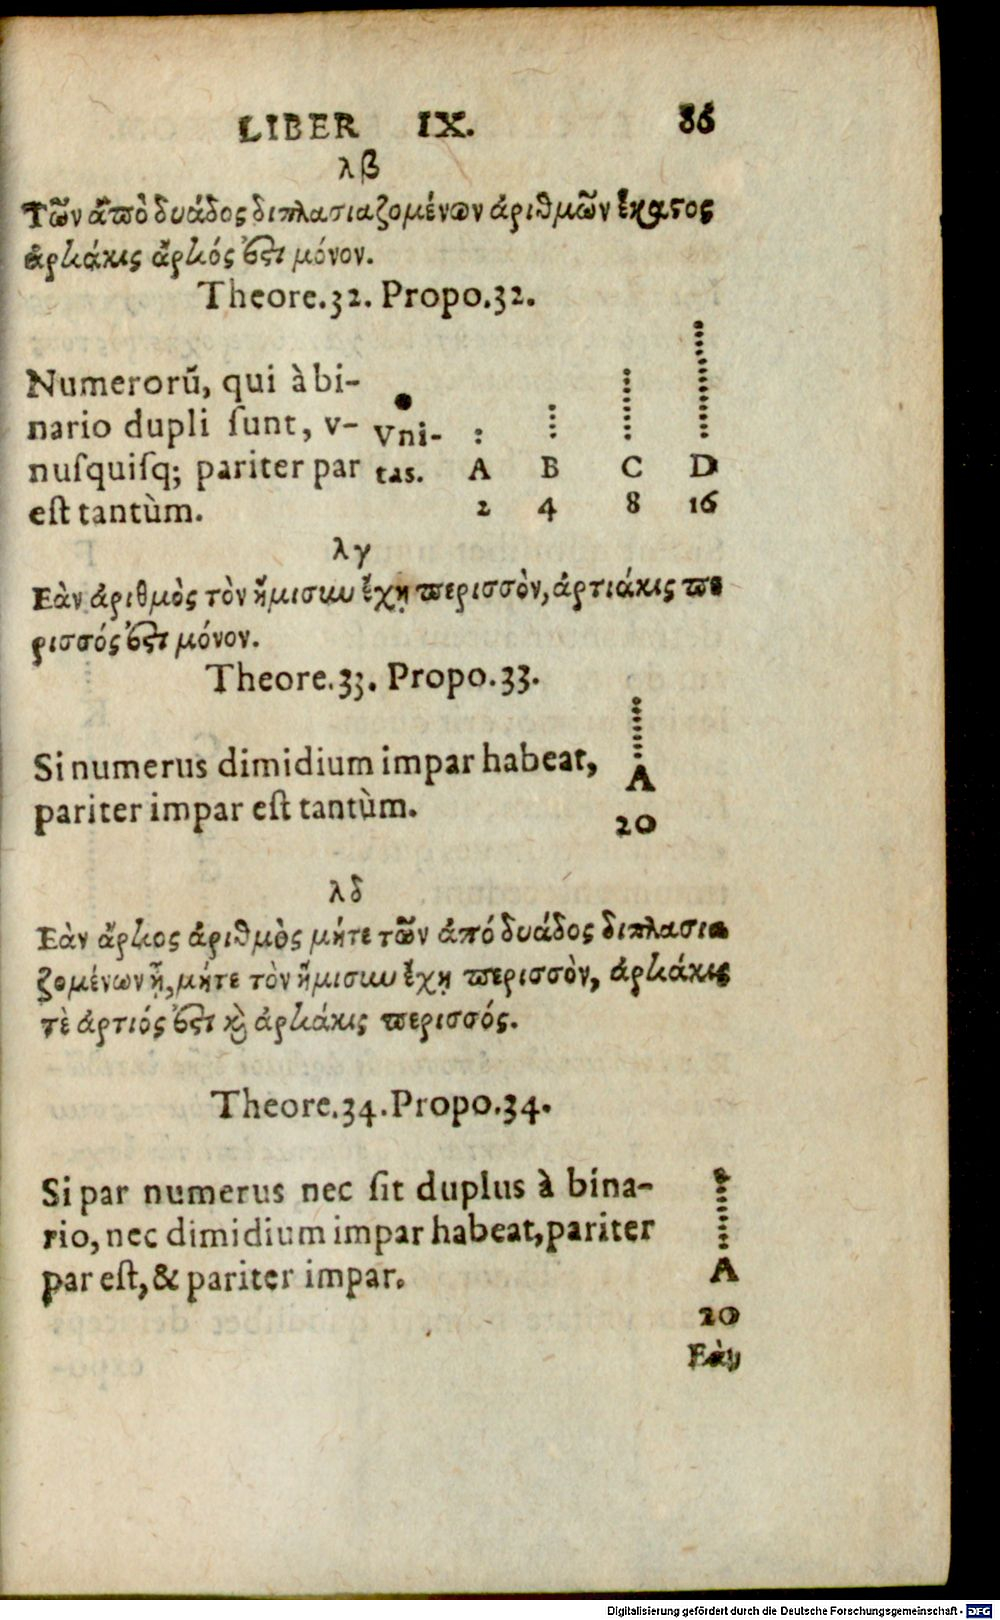 LIBER IX. 86
λβ
Τῶν ἀπὸ δυάδος διπλασιαζομένων ἀριθμῶν ἕκαστος
ἀρτιάκις ἄρτιός ἐστι μόνον.
Theore.32. Propo.32.
Numerorū, qui à bi-
nario dupli ſunt, v-
nuſquiſq; pariter par
eſt tantùm.
Vni-
tas. A B C D
2 4 8 16
λγ
Εὰν ἀριθμὸς τὸν ἥμισυν ἔχῃ περισσὸν, ἀρτιάκις πε
ρισσός ἐστι μόνον.
Theore.33. Propo.33.
Si numerus dimidium impar habeat,
pariter impar eſt tantùm.
A
20
λδ
Εὰν ἄρτιος ἀριθμὸς μήτε τῶν ἀπό δυάδος διπλασια
ζομένων ᾖ, μήτε τὸν ἥμισυν ἔχῃ περισσὸν, ἀρτιάκις
τὲ ἀρτιός ἐστι καὶ ἀρτιάκις περισσός.
Theore.34. Propo.34.
Si par numerus nec ſit duplus à bina-
rio, nec dimidium impar habeat, pariter
par eſt, & pariter impar.
A
20
Εὰν
Digitalisierung gefördert durch die Deutsche Forschungsgemeinschaft - DFG